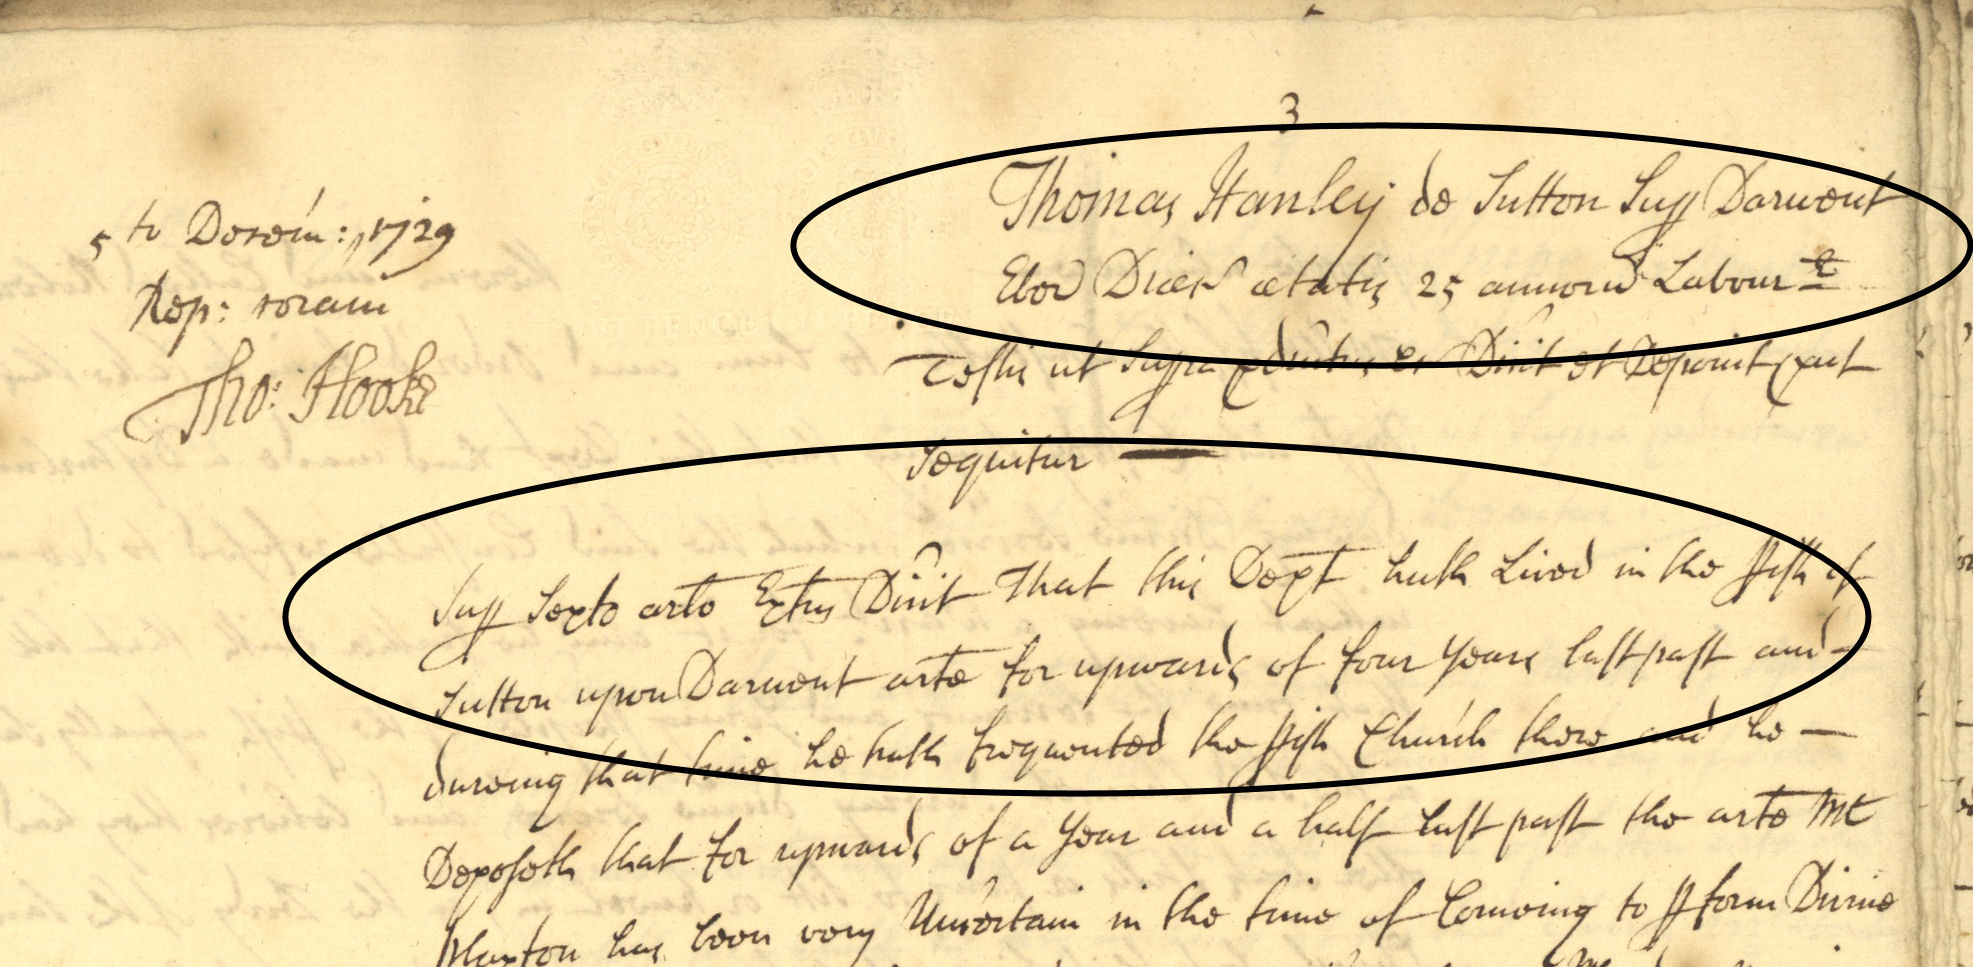 3
5to Decem: 1729
Rep: coram
Tho: Hooke
Thomas Stanley de Sutton Supp Darwent
Ebor Dioces aetatis 25 annoru Labourr
Testis ut Supra &c Dicit et Deponit put
Sequitur
Supp Sexto arto Extus Dicit That this Dept hath Lived in the Pish of
Sutton upon Darwent arte for upwards of four Years last past and
dureing that time he hath frequented the Pish Church there and he
Deposeth that for upwards of a Year and a half last past the arte Mr
Maxton has been very Uncertain in the time of Comeing to Pform Divine